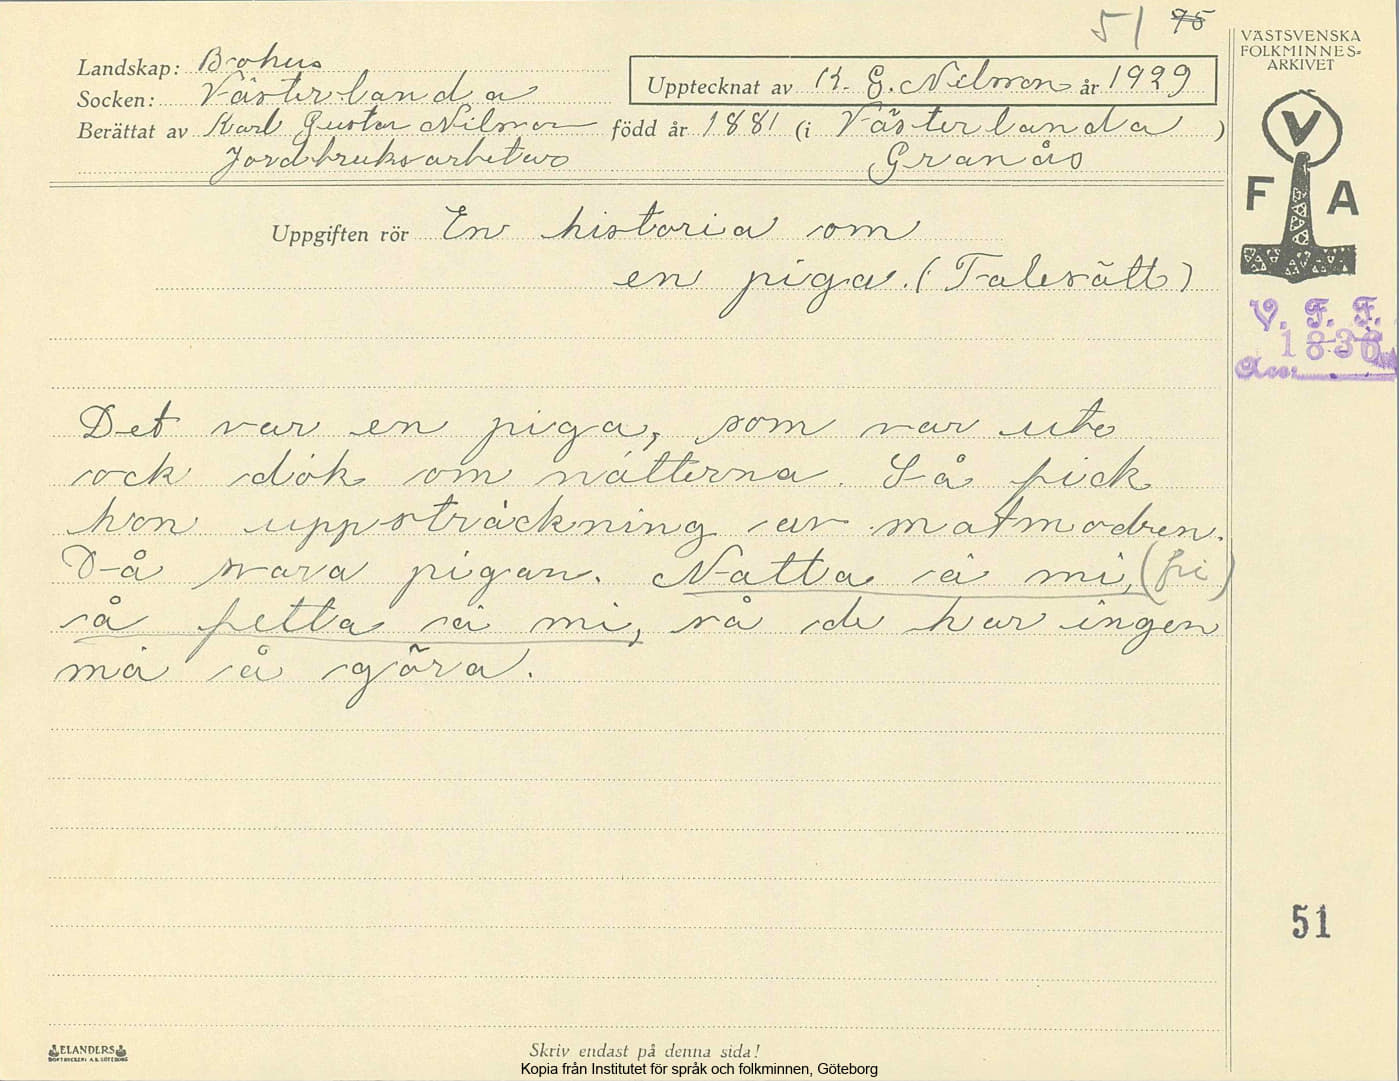 51 95
VÄSTSVENSKA
FOLKMINNES-
ARKIVET
Landskap: Bohus
Upptecknat av K. G. Nilsson år 1929
Socken: Västerlanda
Berättat av Karl Gustav Nilsson född år 1881 (i Västerlanda )
Jordbruksarbetare Granås
V
F A
Uppgiften rör En historia om
en piga. (Talesätt)
V. F. F.
1836
Acc:
Det var en piga, som var ute
ock sök om nätterna. Så fick
hon uppsträckning av matmodren.
Då svara pigan. Natta sä mi, (fri
så fetta sä mi, så de har ingen
mä så göra.
51
ELANDERS
BOKTRYCKERI A.B. GÖTEBORG
Skriv endast på denna sida!
Kopia från Institutet för språk och folkminnen, Göteborg